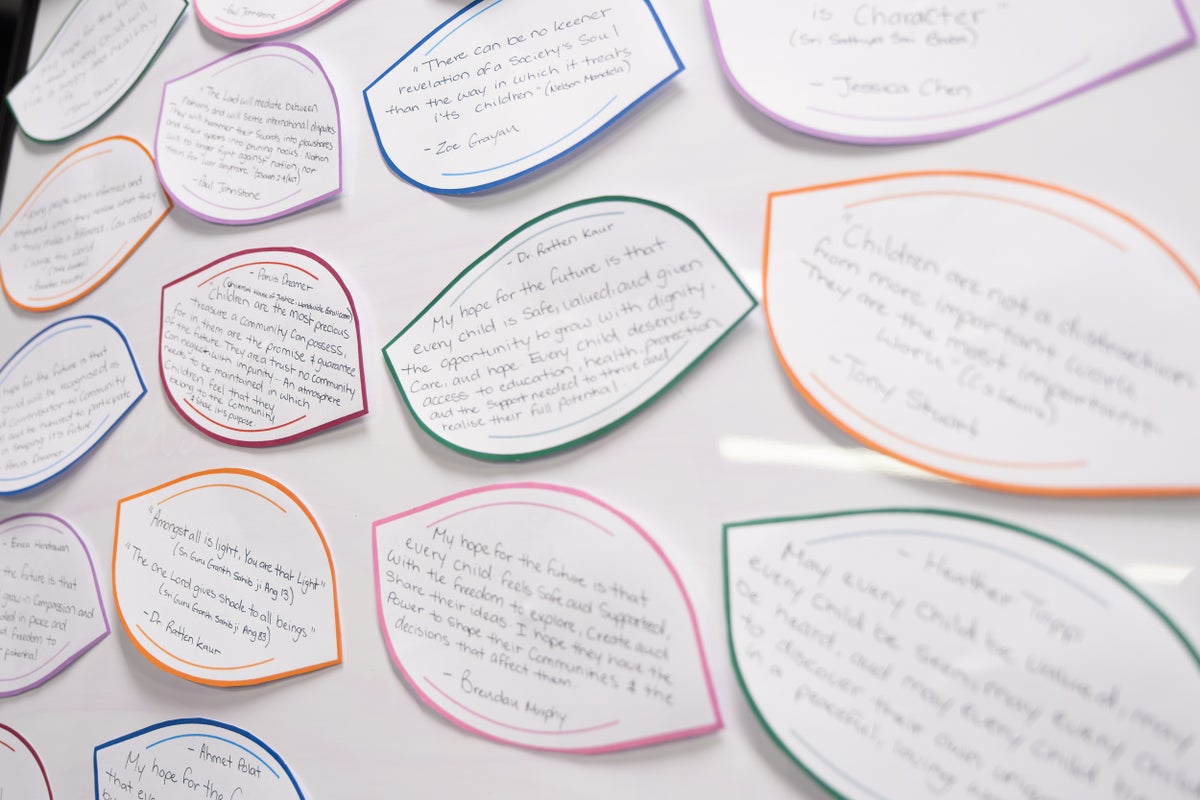 - Paul Johnstone
hope for the fu
every child will
life."
"The Lord will mediate between
nations and will settle international disputes
They will hammer their swords into plowshares
and their spears into pruning hooks. Nation
will no longer fight against nation, nor
train for war anymore." (Isaiah 2:4 (NLT)
- Paul Johnstone
"There can be no keener
revelation of a Society's Soul
than the way in which it treats
it's children." (Nelson Mandela)
- Zoe Grayan
is Character"
(Sri Sathya Sai Baba)
- Jessica Chen
people when informed and
when they realise what they
do truly make a difference, can indeed
change the world
- Parvis Dreamer
(Universal House of Justice, worldwide
"Children are the most precious
treasure a community can possess,
for in them are the promise & guarantee
of the future. They are a trust no community
can neglect with impunity... An atmosphere
needs to be maintained in which
Children feel that they
belong to the Community
& share its purpose.
- Dr. Ratten Kaur
My hope for the future is that
every child is safe, valued, and given
the opportunity to grow with dignity,
Care, and hope. Every child deserves
access to education, health, protection
and the support needed to thrive and
realise their full potential.
"Children are not a distraction
from more important work.
They are the most important
- Tony Stuart
for the future is that
child will be recognised as
Contributor to Community
and be nurtured to participate
in shaping it's future
- Parvis Dreamer
- Erica Hendrawan
the future is that
grow in Compassion and
in peace and
freedom to
potential
"Amongst all is light, You are that Light"
(Sri Guru Granth Sahib ji Ang 13)
"The one Lord gives shade to all beings"
(Sri Guru Granth Sahib ji Ang 83)
- Dr. Ratten Kaur
My hope for the future is that
every child feels Safe and Supported,
with the freedom to explore, Create and
Share their ideas. I hope they have the
Power to shape their Communities & the
decisions that affect them.
- Brendan Murphy
- Heather Topp
May every Child be valued, may
every Child be seen, may every Child
be heard, and may every Child
to discover their own unique
in a peaceful, loving
- Ahmet Polat
My hope for the f
that eve